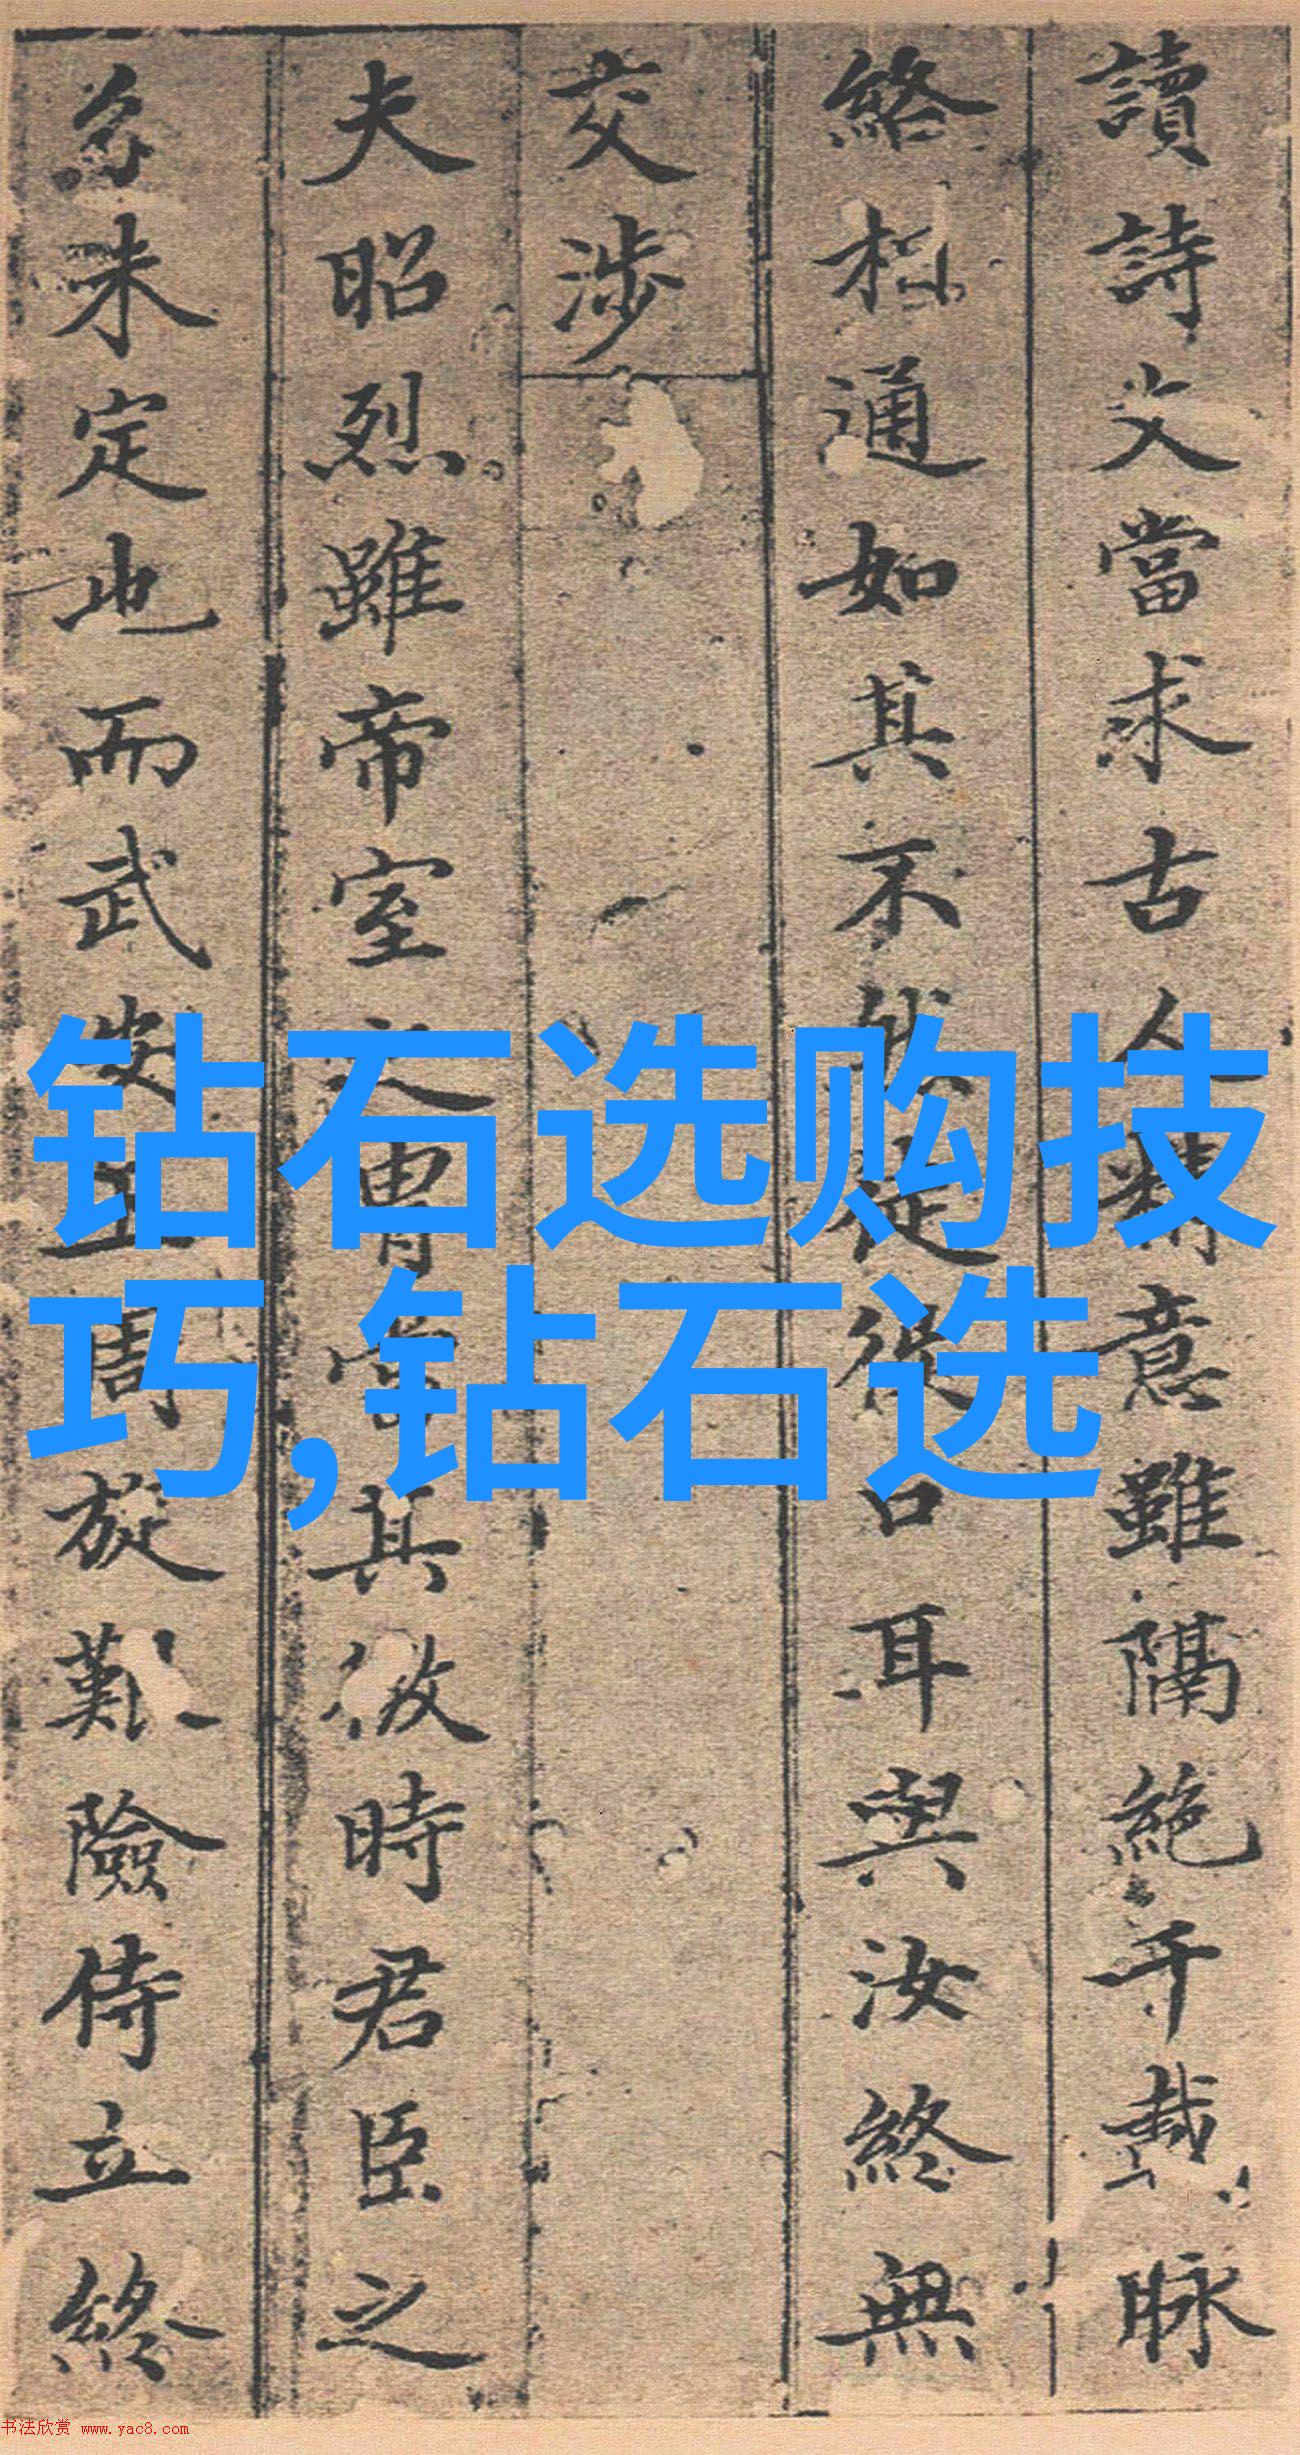 讀詩文當求古人精意雖隔絕千載脉
絡相通如其不然徒役口耳與汝終無
交涉
夫昭烈雖帝室之冑當其微時君臣之
分未定也而武安王周旋艱險侍立終
钻石选购技
巧,钻石选
书法欣赏 www.yac8.com